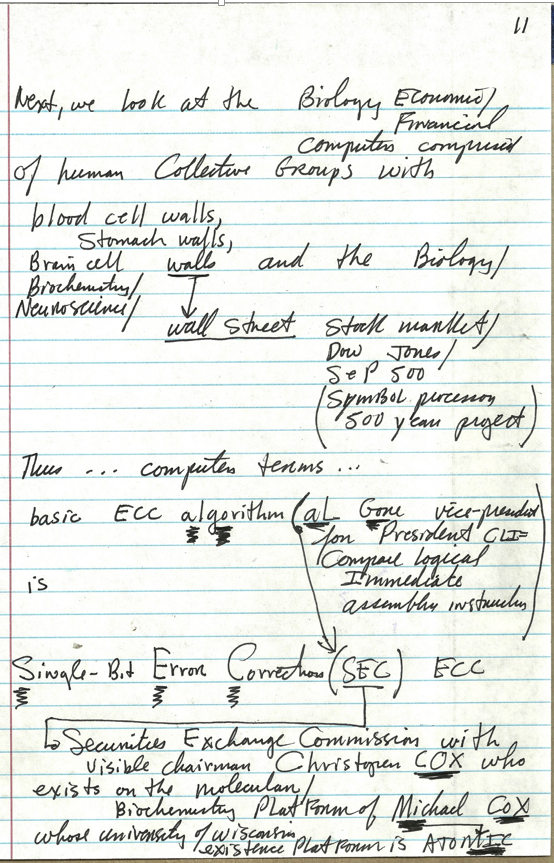 11
Next, we look at the Biology Economic/
Financial
Computers comprised
of human Collective Groups with
blood cell walls,
Stomach walls,
Brain cell walls and the Biology/
Biochemistry/
Neuroscience/
wall street Stock market/
Dow Jones/
S&P 500
(Symbol processor
500 year project)
Thus ... computer terms ...
basic ECC algorithm (aL Gore vice-president
for President CLI=
Compare logical
Immediate
assembly instruction)
is
Single-Bit Error Correction (SEC) ECC
Securities Exchange Commission with
visible chairman Christopher COX who
exists on the molecular/
Biochemistry Platform of Michael COX
whose university of wisconsin
existence Platform is ATOMIC